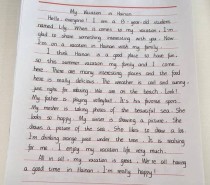 My Vacation in Hainan
Hello, everyone! I am a 15-year-old student
named Lily. When it comes to my vacation, I'm
glad to share something interesting with you. Now
I'm on a vacation in Hainan with my family.
I think Hainan is a good place to have fun,
so this summer vacation my family and I come
here. There are many interesting places and the food
here is really delicious. The weather is hot and sunny,
just right for relaxing. We are on the beach. Look!
My father is playing volleyball. It's his favorite sport.
My mother is taking photos of the beautiful sea. She
looks so happy. My sister is drawing a picture. She
draws a picture of the sea. She likes to draw a lot.
I'm drinking orange juice under the tree. It is relaxing
for me. I enjoy my vacation life very much.
All in all, my vacation is great. We're all having
a good time in Hainan. I'm really happy!